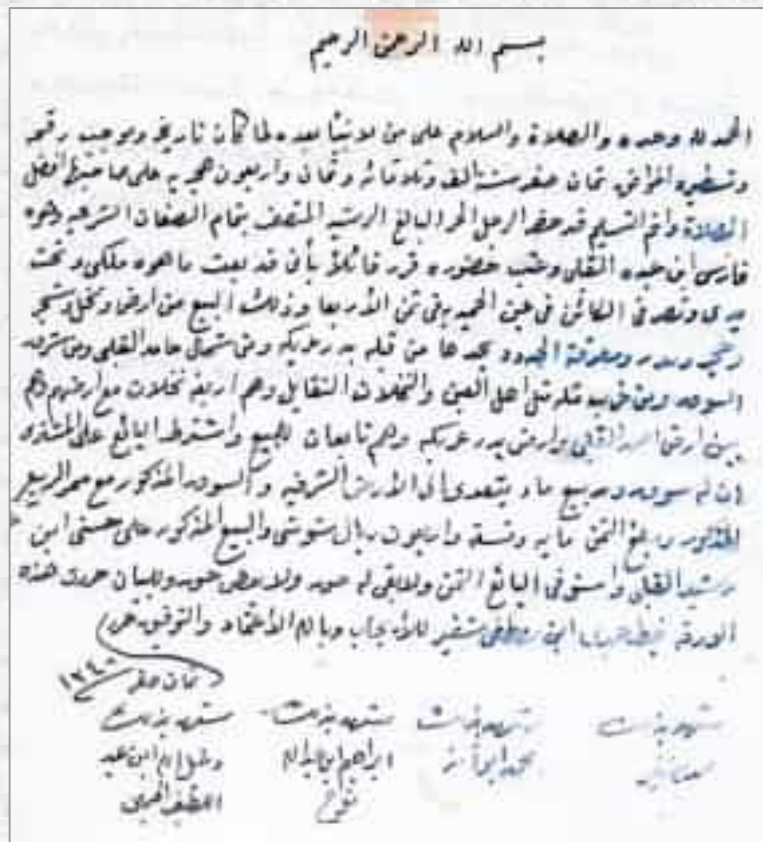 بسم الله الرحمن الرحيم
الحمد لله وحده والصلاة والسلام على من لا نبيا بعده لما كان تاريخ وموجب رقمه
وتسطيره الموافق ثمان صفر سنة الف وثلاثمائه وثمان واربعون هجريه على صاحبها افضل
الصلاة واتم التسليم قد حضر الرجل الحر البالغ الرشيد المتصف بتمام الصفات الشرعيه وهوه
فارس ابن عبده القبلي وعقب حضوره قرر قائلاً بأن قد بعت ما هوه ملكي وتحت
يدي وتصرفي الكائن في عين الحميد في ثمن الأربعا وذلك البيع من ارض ونخل وشجر
وحجر ومدر ومعرفة الحدود يحدها من قبله بدر عريكه ومن شمال حامد القبلي ومن شرقه
السوده ومن غرب اهل العين والنخلات وهم اربعة نخلات مع ارضهم وهم
بين ارض القبلي وارض بدر عريكه وهم تابعان للبيع واشترط البائع على المشتري
ان له ربيع ماء يتعدى الى الأرض الشرقيه السوده المذكور مع ممر الربيع
المذكور وبلغ الثمن مايه وتسعة واربعون ريال والبيع المذكور على حسني ابن
رشيد القبلي واستوفى البائع الثمن ولا بقي له وللبيان حررت هذه
الورقه ابن شقير للأيجاب وبالله الأعتماد والتوفيق تحرر
ثمان صفر ١٣٤٨
شهد بذلك شهد بذلك شهد بذلك شهد بذلك
محمد ابو ابراهيم ابن عبدالله ابن عبد
اللطيف الحربي